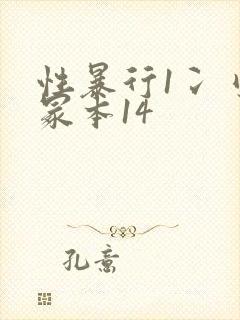 性暴行1冫
冢本14
孔意